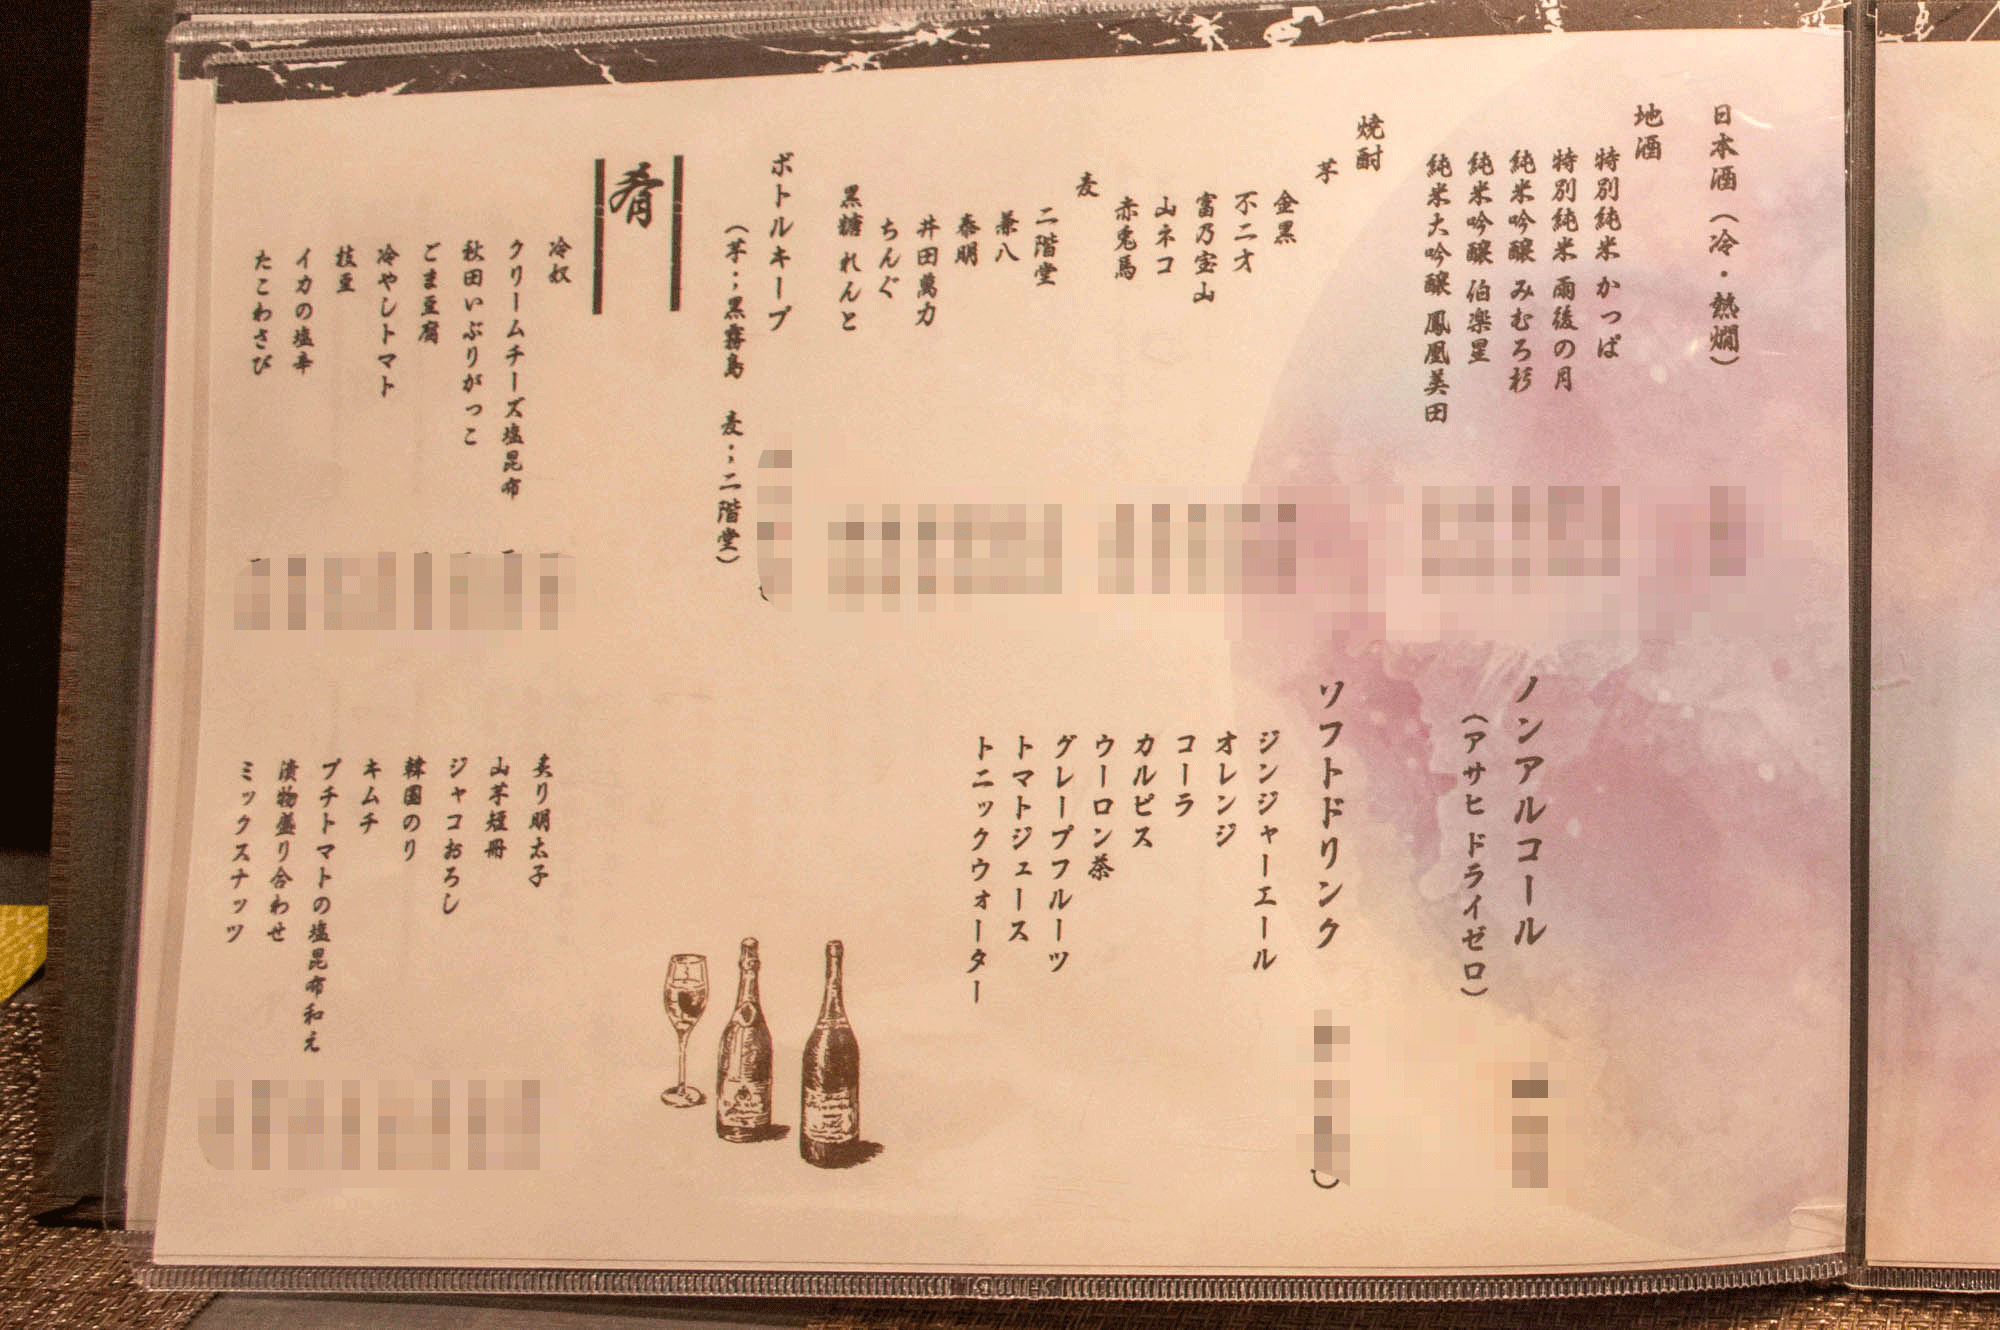 日本酒（冷・熱燗）
地酒
特別純米 かっぱ
特別純米 雨後の月
純米吟醸 みむろ杉
純米吟醸 伯楽星
純米大吟醸 鳳凰美田
焼酎
芋
金黒
不二才
富乃宝山
山ネコ
赤兎馬
麦
二階堂
兼八
泰明
井田萬力
ちんぐ
黒糖 れんと
ボトルキープ
（芋；黒霧島　麦；二階堂）
ノンアルコール
（アサヒ ドライゼロ）
ソフトドリンク
ジンジャーエール
オレンジ
コーラ
カルピス
ウーロン茶
グレープフルーツ
トマトジュース
トニックウォーター
肴
冷奴
クリームチーズ塩昆布
秋田いぶりがっこ
ごま豆腐
冷やしトマト
枝豆
イカの塩辛
たこわさび
炙り明太子
山芋短冊
ジャコおろし
韓国のり
キムチ
プチトマトの塩昆布和え
漬物盛り合わせ
ミックスナッツ